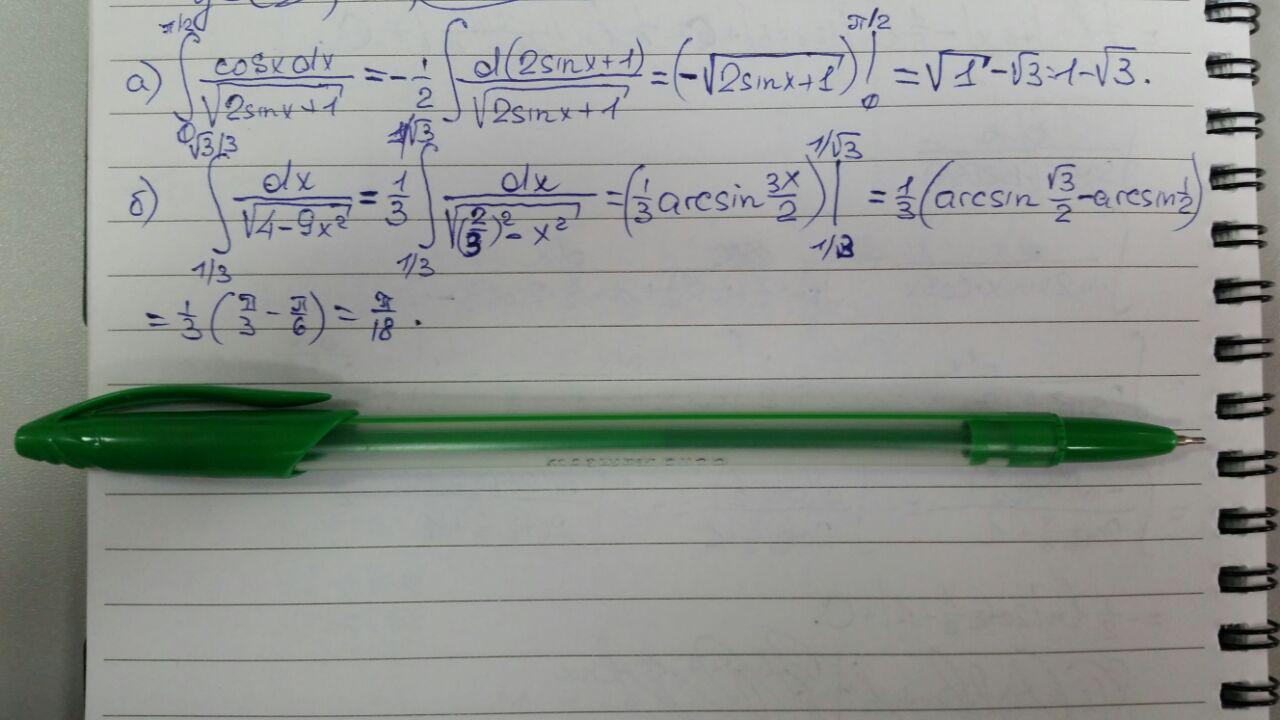 а) ∫₀^{π/2} cosxdx/√(2sinx+1) = -1/2 ∫ d(2sinx+1)/√(2sinx+1) = (-√(2sinx+1))|₀^{π/2} = √1 - √3 = 1 - √3.
б) ∫_{1/3}^{√3/3} dx/√(4-9x²) = 1/3 ∫_{1/3}^{1/√3} dx/√((2/3)²-x²) = (1/3 arcsin 3x/2)|_{1/3}^{1/√3} = 1/3 (arcsin √3/2 - arcsin 1/2)
= 1/3 (π/3 - π/6) = π/18.